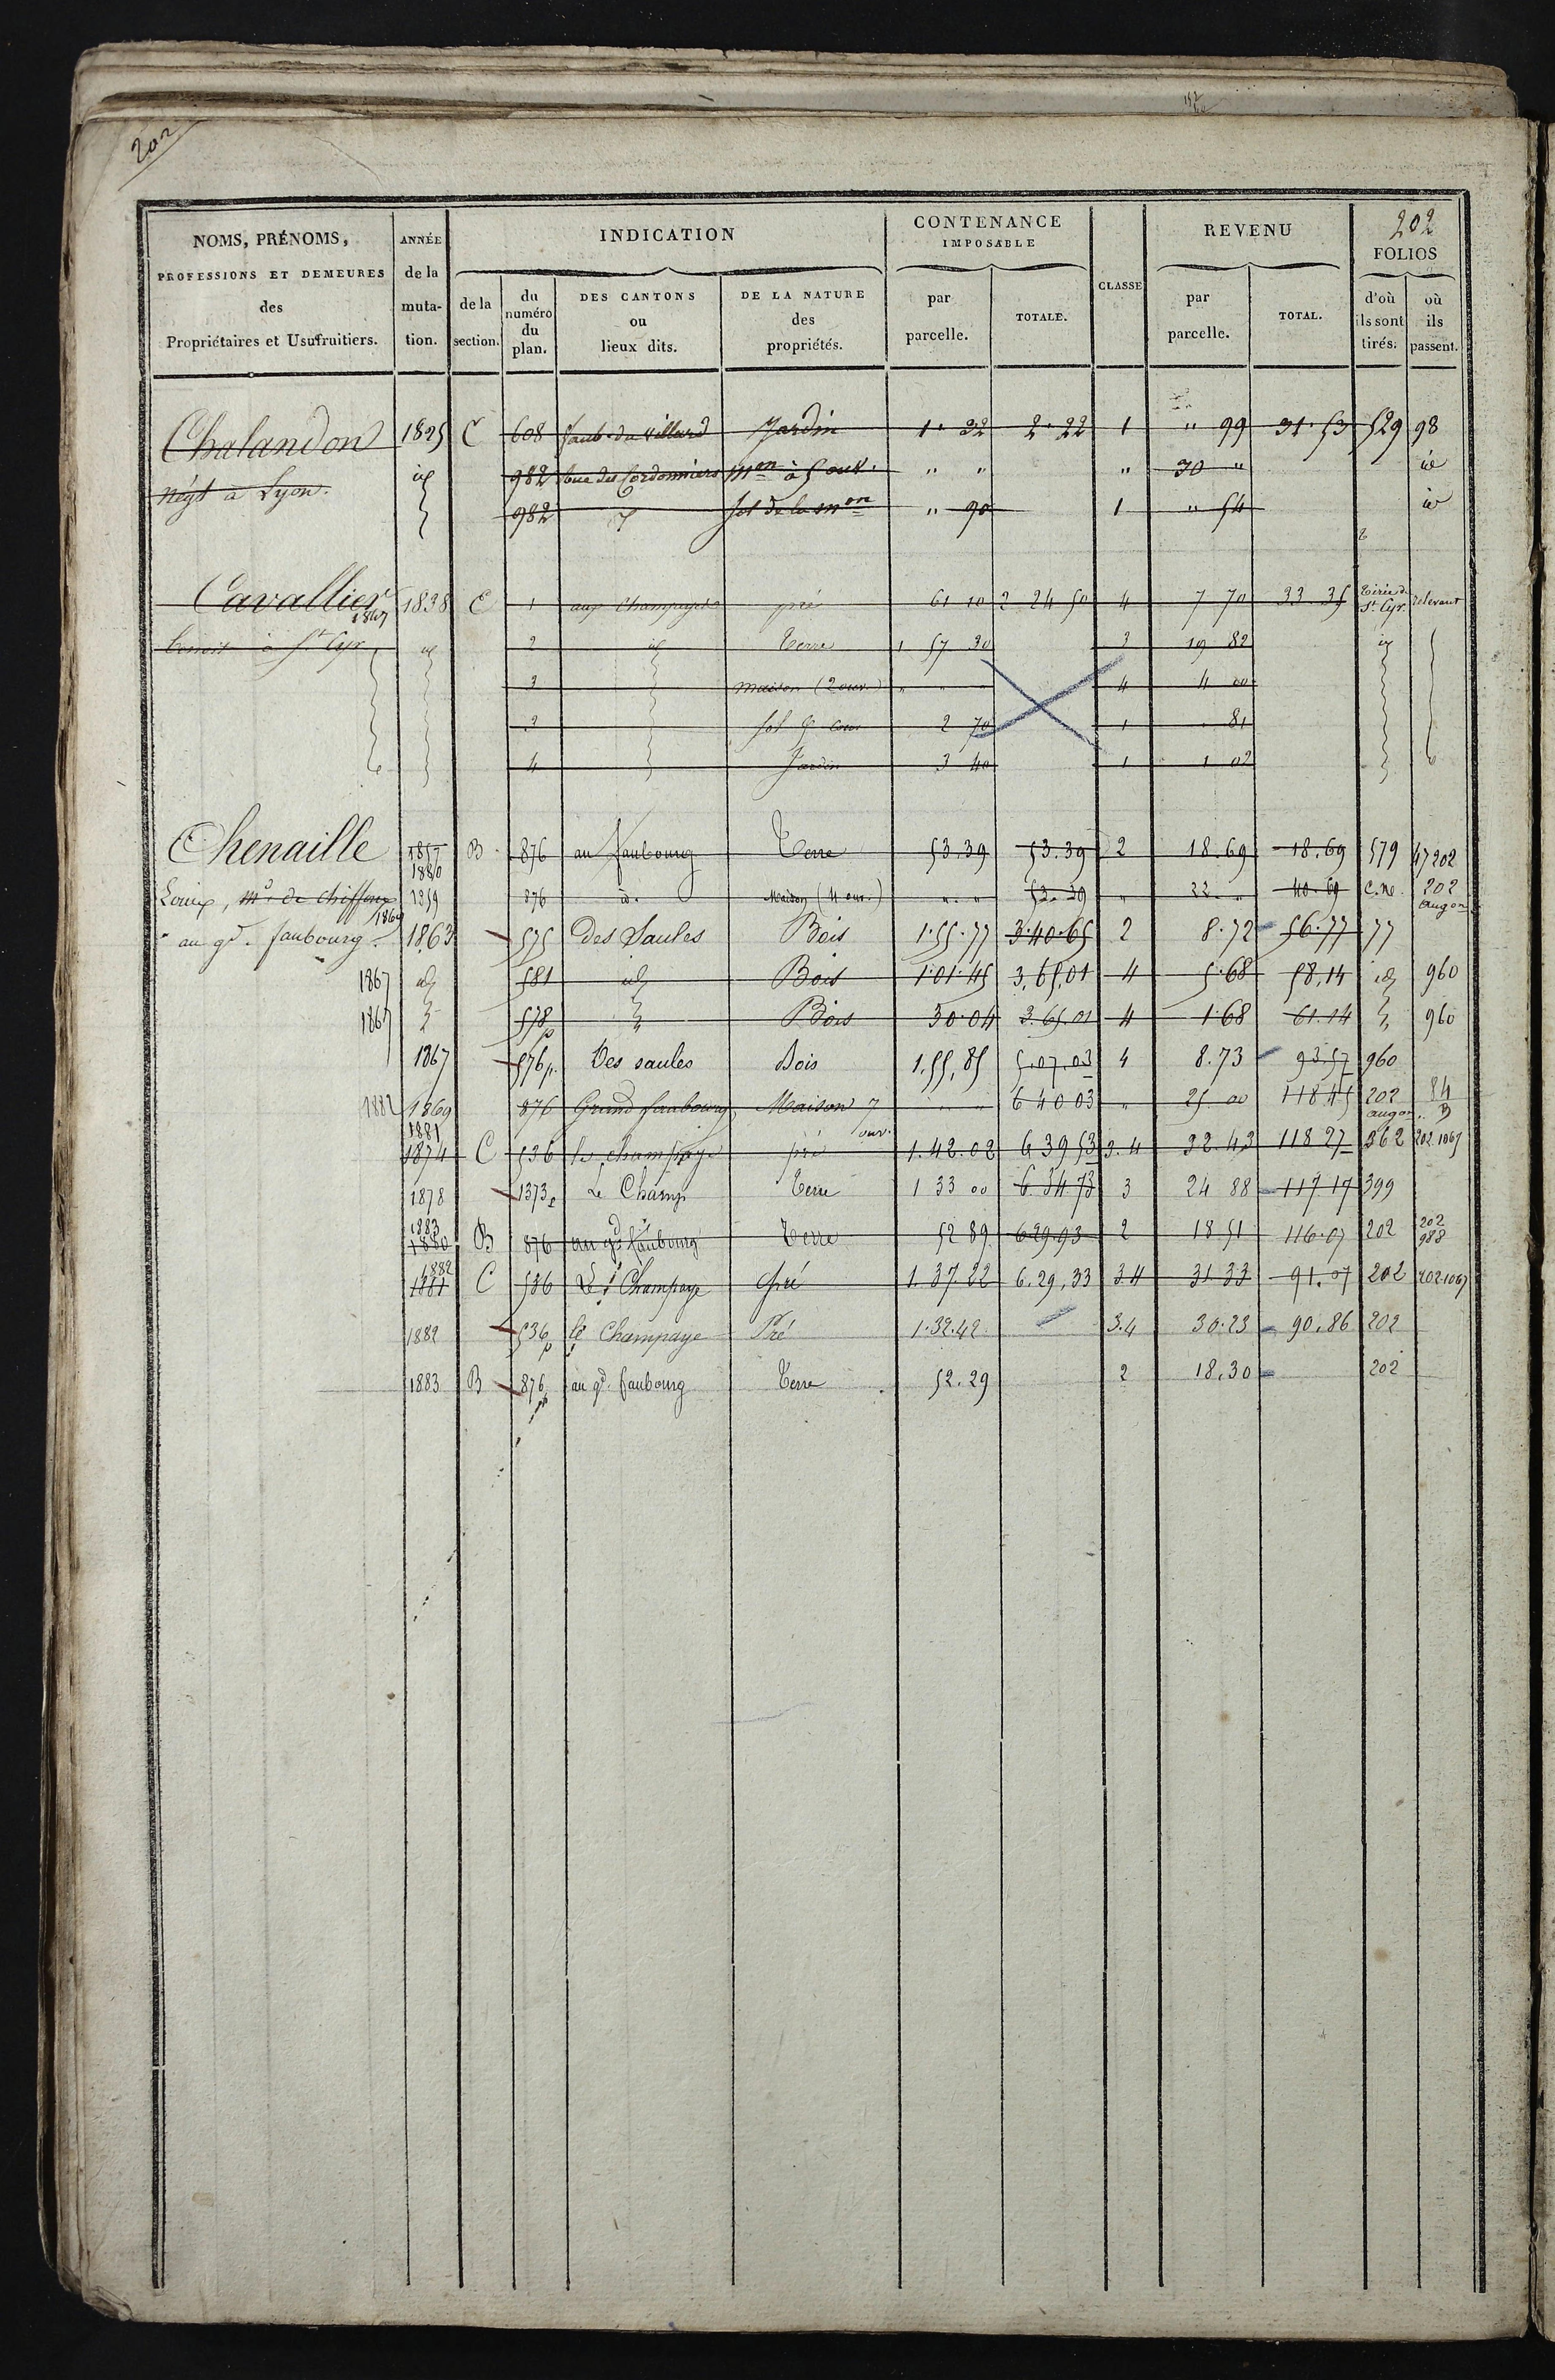 202
202
NOMS, PRÉNOMS, PROFESSIONS ET DEMEURES des Propriétaires et Usufruitiers.
ANNÉE de la mutation.
INDICATION
de la section.
du numéro du plan.
DES CANTONS ou lieux dits.
DE LA NATURE des propriétés.
CONTENANCE IMPOSABLE
par parcelle.
TOTALE.
CLASSE
REVENU
par parcelle.
TOTAL.
FOLIOS
d'où ils sont tirés.
où ils passent.
Chalandon 1825 C 608 faub. du villard Jardin 1" 32 2" 22 1 " 99 31.53 529 98
négt à Lyon. id 982 rue des Cordonniers mon à 5 ouv. " " " 30 " id
982 sol de la mon " 90 1 " 54 id
Cavallier 1838 C 1 aux champayes pré 61 10 2 24 50 4 7 70 33 35 tirée de St Cyr relevant
1867
à St Cyr id 2 id Terre 1 57 30 3 19 82 id
3 maison (2 ouv.) " " " 4 4 00
sol & cour 2 70 1 81
4 Jardin 3 40 1 1 02
Chenaille 1857 B 876 au faubourg Terre 53.39 53.39 2 18.69 18.69 579 47 202
1880
Louis, md de chiffons 1859 876 d. Maison (4 ouv.) " " 53.39 " 22 " 40.69 C.ne 202 augon
1869
au gd. faubourg. 1863 575 Des Saules Bois 1.55.77 3.40.65 2 8.72 56.77 77
1867 id 581 id Bois 1.01.45 3,65,01 4 5.68 58,14 id 960
1867 578p Bois 30.04 3.65.01 4 1.68 61.14 960
1867 576p. Des saules Bois 1.55,85 5.07.03 4 8.73 93.57 960
1882 1869 876 Grand faubourg Maison 7 ouv. " " 6 40 03 " 25.00 118.45 202 augon. 84 B
1881
1874 C 536 le champaye pré 1.42.02 6 39 53 3.4 32.43 118 27 362 202.1067
1878 1373p Le Champ Terre 1 33 00 6 34 73 3 24 88 117 17 399
1883
1880 B 876 au gd faubourg Terre 52 89 629.93 2 18 51 116.07 202 202 988
1882
1881 C 536 Le Champaye Pré 1.37.22 6.29,33 34 31.33 91.07 202 202.1067
1882 536p le Champaye Pré 1.32.42 3.4 30.23 90.86 202
1883 B 876p au gd. faubourg Terre 52.29 2 18.30 202